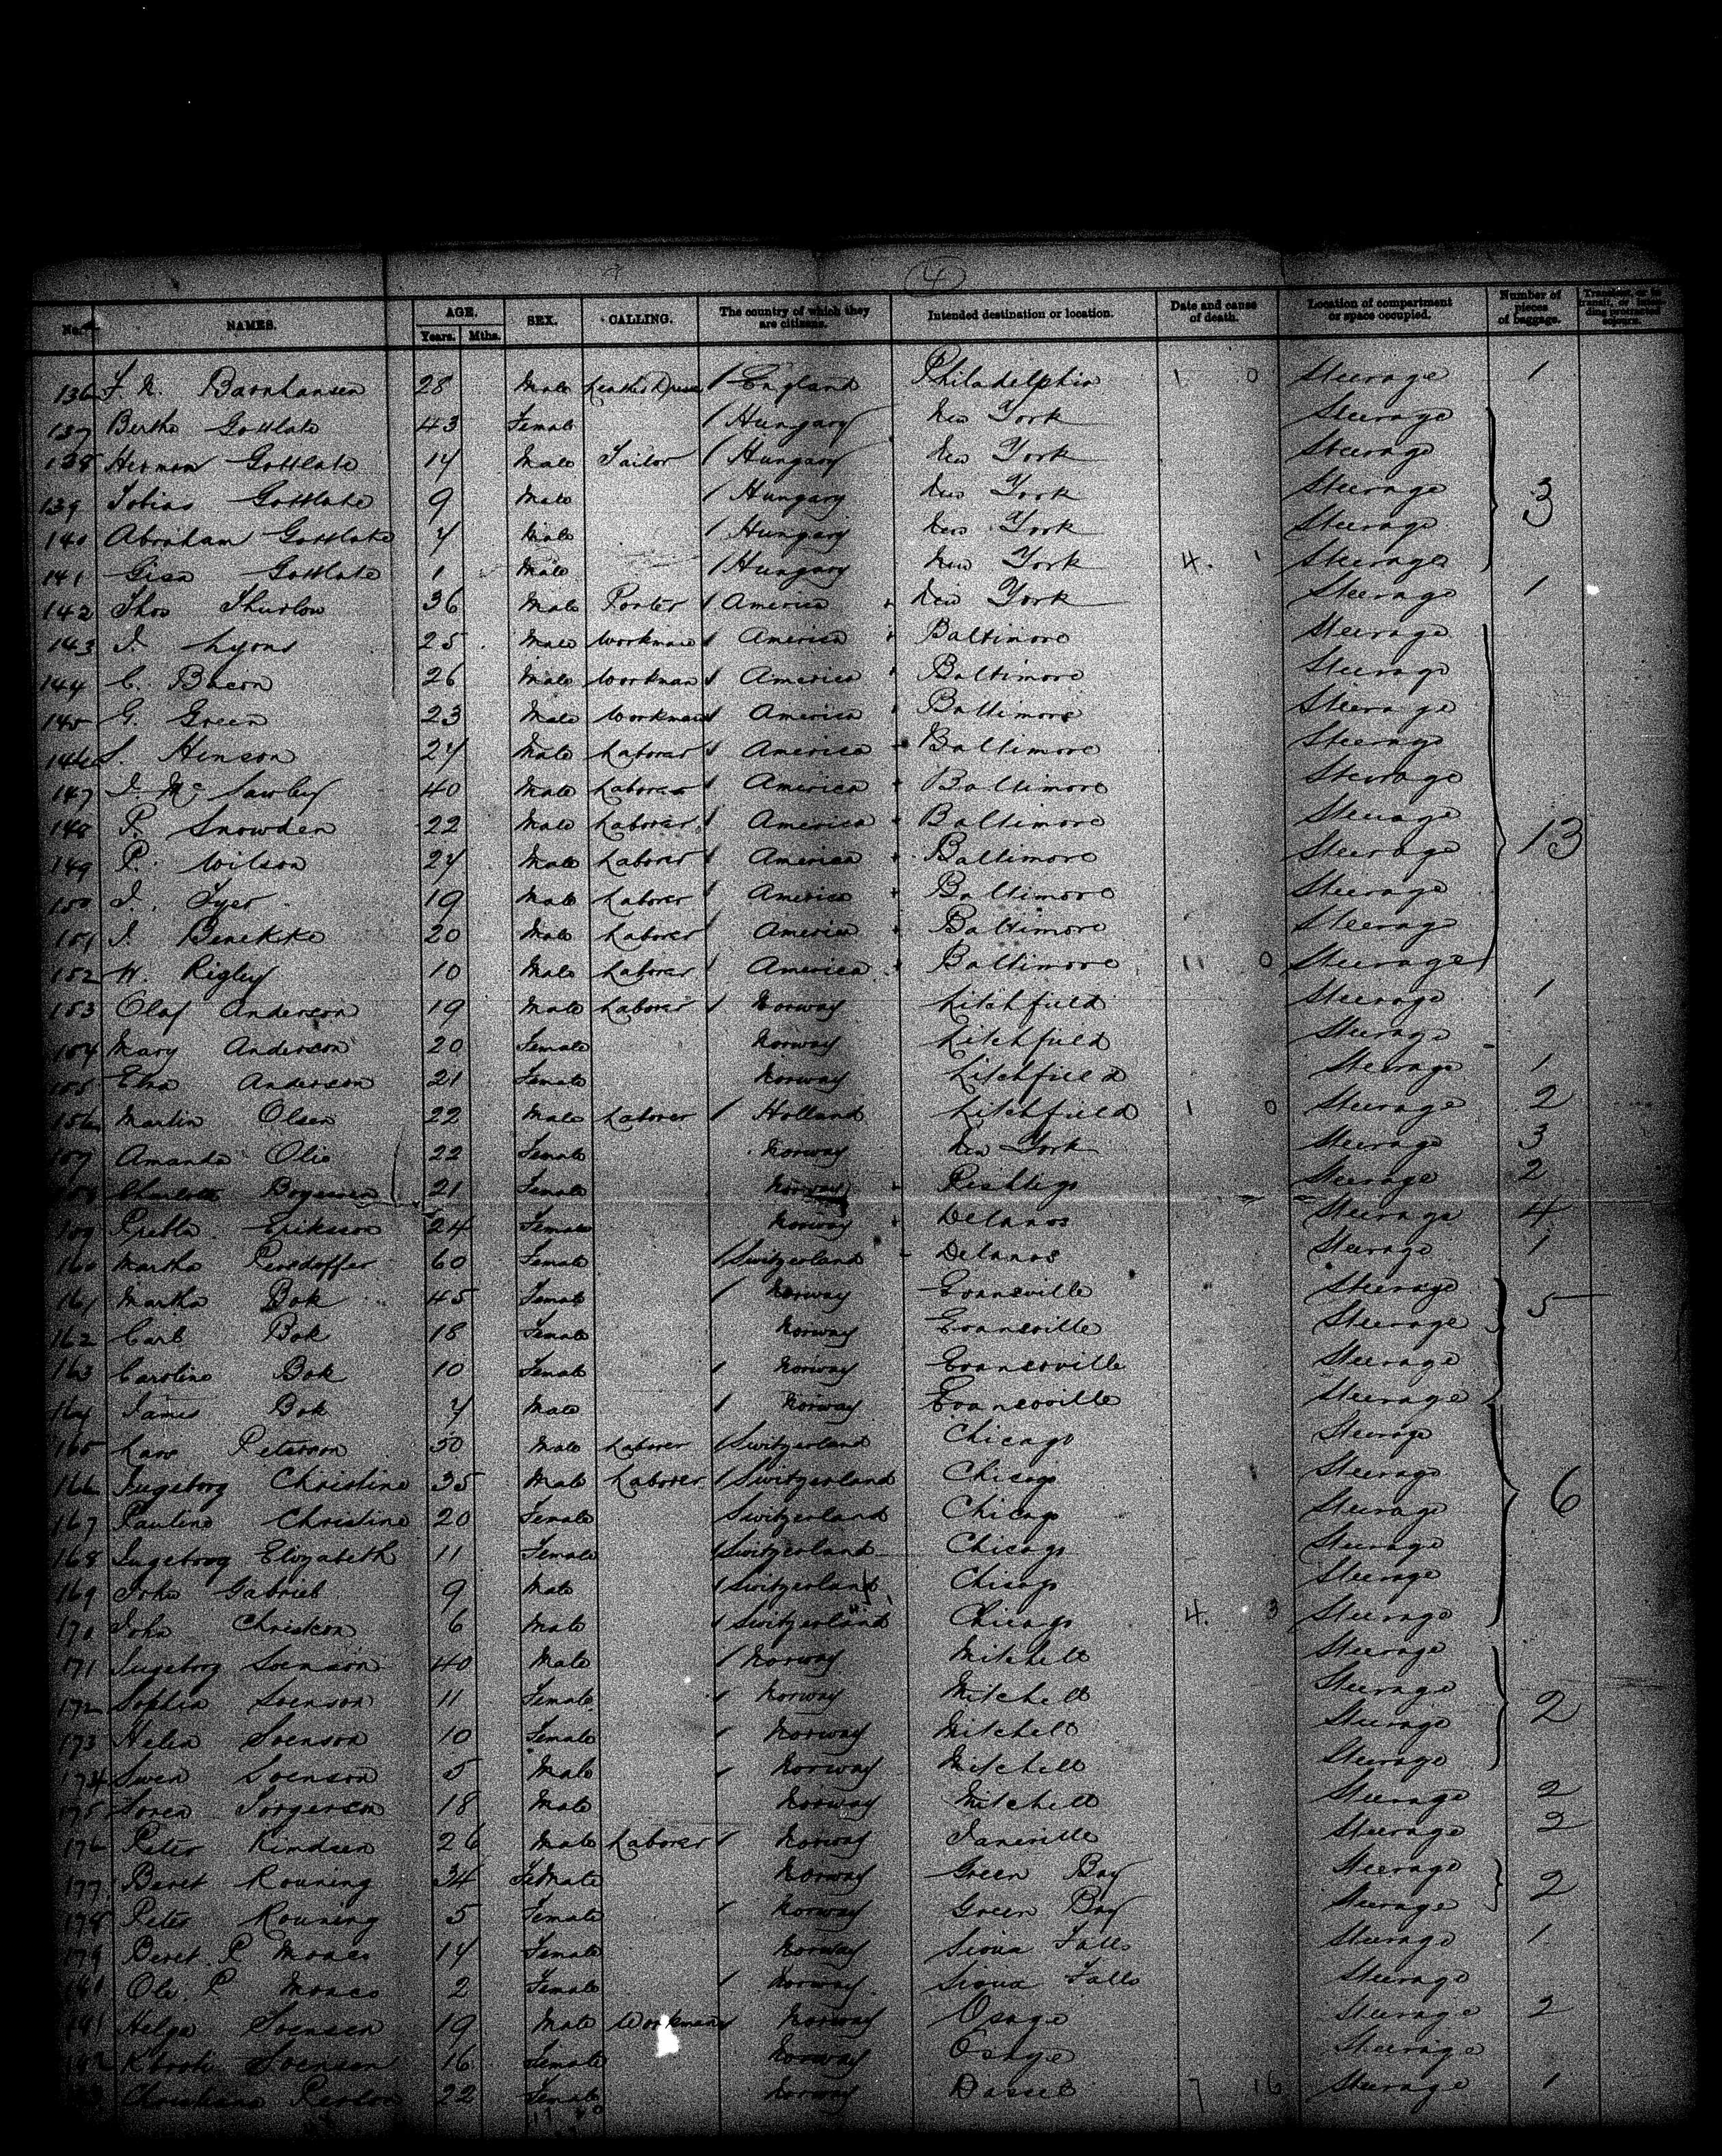 4
No. NAMES. AGE. Years. Mths. SEX. CALLING. The country of which they are citizens. Intended destination or location. Date and cause of death. Location of compartment or space occupied. Number of pieces of baggage.
136 F. N. Barnhansen 28 Male Leather Dresser 1 England Philadelphia 1 0 Steerage 1
137 Bertha Gottlate 43 Female 1 Hungary New York Steerage
138 Herman Gottlate 14 Male Tailor 1 Hungary New York Steerage
139 Tobias Gottlate 9 Male 1 Hungary New York Steerage 3
140 Abraham Gottlate 7 Male 1 Hungary New York Steerage
141 Gisa Gottlate 1 Male 1 Hungary New York 4. 1 Steerage
142 Thos Thurlow 36 Male Porter 1 America New York Steerage 1
143 J. Lyons 25 Male Workman 1 America Baltimore Steerage
144 C. Bacon 26 Male Workman 1 America Baltimore Steerage
145 G. Green 23 Male Workman 1 America Baltimore Steerage
146 S. Hinson 27 Male Laborer 1 America Baltimore Steerage
147 J. Mc Sawley 40 Male Laborer 1 America Baltimore Steerage
148 P. Snowden 22 Male Laborer 1 America Baltimore Steerage 13
149 P. Wilson 27 Male Laborer 1 America Baltimore Steerage
150 J. Tyer 19 Male Laborer 1 America Baltimore Steerage
151 J. Benekke 20 Male Laborer 1 America Baltimore Steerage
152 H. Rigley 10 Male Laborer 1 America Baltimore 11 0 Steerage
153 Olaf Anderson 19 Male Laborer 1 Norway Litchfield Steerage 1
154 Mary Anderson 20 Female Norway Litchfield Steerage
155 Elna Anderson 21 Female Norway Litchfield Steerage 1
156 Martin Olsen 22 Male Laborer 1 Holland Litchfield 1 0 Steerage 2
157 Amanda Olie 22 Female Norway New York Steerage 3
158 Charlotte 21 Female Norway Steerage 2
159 Eriksson 24 Female Norway Delanos Steerage 4
160 Martha Persdoffer 60 Female 1 Switzerland Delanos Steerage 1
161 Martha Bok 45 Female 1 Norway Evansville Steerage 5
162 Carl Bok 18 Female Norway Evansville Steerage
163 Caroline Bok 10 Female 1 Norway Evansville Steerage
164 James Bok 7 Male 1 Norway Evansville Steerage
165 Lars Peterson 50 Male Laborer 1 Switzerland Chicago Steerage
166 Ingeborg Christine 35 Male Laborer 1 Switzerland Chicago Steerage 6
167 Pauline Christine 20 Female Switzerland Chicago Steerage
168 Ingeborg Elizabeth 11 Female 1 Switzerland Chicago Steerage
169 John Gabriel 9 Male 1 Switzerland Chicago Steerage
170 John Christian 6 Male 1 Switzerland Chicago 4. 3 Steerage
171 Ingeborg Svenson 40 Male 1 Norway Mitchell Steerage
172 Sophia Svenson 11 Female 1 Norway Mitchell Steerage 2
173 Helen Svenson 10 Female 1 Norway Mitchell Steerage
174 Swen Svenson 5 Male 1 Norway Mitchell Steerage
175 Soren Jorgerson 18 Male Norway Mitchell Steerage 2
176 Peter Kindsen 26 Male Laborer 1 Norway Janeville Steerage 2
177 Beret Rouning 34 Female Norway Green Bay Steerage 2
178 Peter Rouning 5 Female 1 Norway Green Bay Steerage
179 Beret P Moaes 14 Female Norway Sioua Falls Steerage 1
181 Ole P Moaes 2 Female 1 Norway Sioua Falls Steerage
181 Helga Svensen 19 Male Workman 1 Norway Osage Steerage 2
182 Svensen 16 Female Norway Osage Steerage
Christiana 22 Female Norway Dassel 7 16 Steerage 1